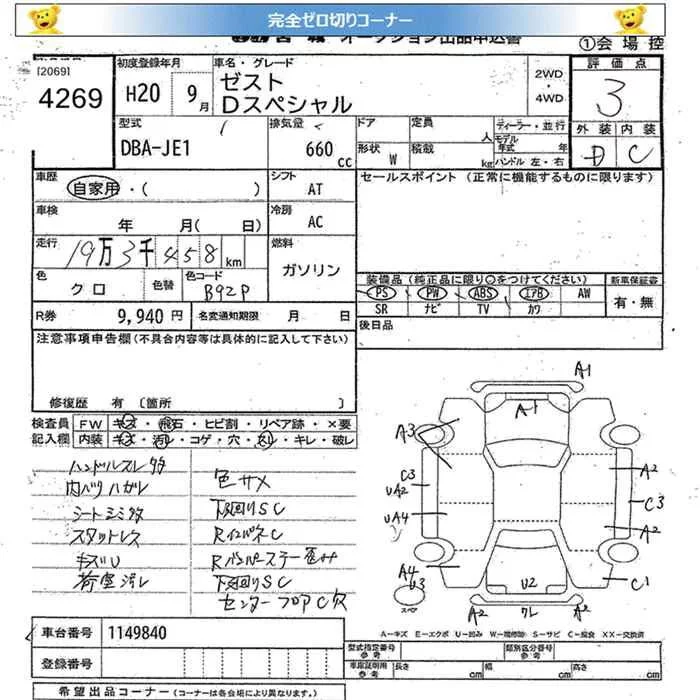 完全ゼロ切りコーナー
オークション出品申込書
①会場控
[2069]
4269
初度登録年月
H20 9月
車名・グレード
ゼスト
Dスペシャル
2WD
・
4WD
評価点
3
外装 内装
D C
型式
DBA-JE1
排気量
660 cc
ドア 定員 人
形状 W 積載 kg
ディーラー・並行
モデル年式 年
ハンドル 左・右
車歴
自家用・( )
シフト
AT
セールスポイント (正常に機能するものに限ります)
車検
年 月( 日)
冷房
AC
走行
19万3千458km
燃料
ガソリン
色
クロ
色替
色コード
B92P
装備品 (純正品に限り○をつけてください)
新車保証書
PS PW ABS エアB AW
SR ナビ TV カワ
有・無
R券 9,940円
名変通知期限 月 日
後日品
注意事項申告欄(不具合内容等は具体的に記入して下さい)
修復歴 有 〔箇所 〕
検査員記入欄
FW キズ・飛石・ヒビ割・リペア跡・×要
内装 キズ・汚レ・コゲ・穴・スレ・キレ・破レ
ハンドルスレ多
内バリハガレ
シートシミ多
スタットレス
キズU
荷室汚レ
色サメ
下廻りSC
RインパネC
Rバンパーステー歪サ
下廻りSC
センターフロアC穴
A1
A1
A3
A2
C3
UA2
C3
UA4
A2
A4
U3
C1
U2
スペア
A2 ワレ A2
A-キズ E-エクボ U-凹み W-補修跡 S-サビ C-腐食 XX-交換済
車台番号 1149840
登録番号
型式指定番号 参考
類別区分番号 参考
車庫証明用 参考
長さ cm 幅 cm 高さ cm
希望出品コーナー (コーナーは各会場により異なります。)